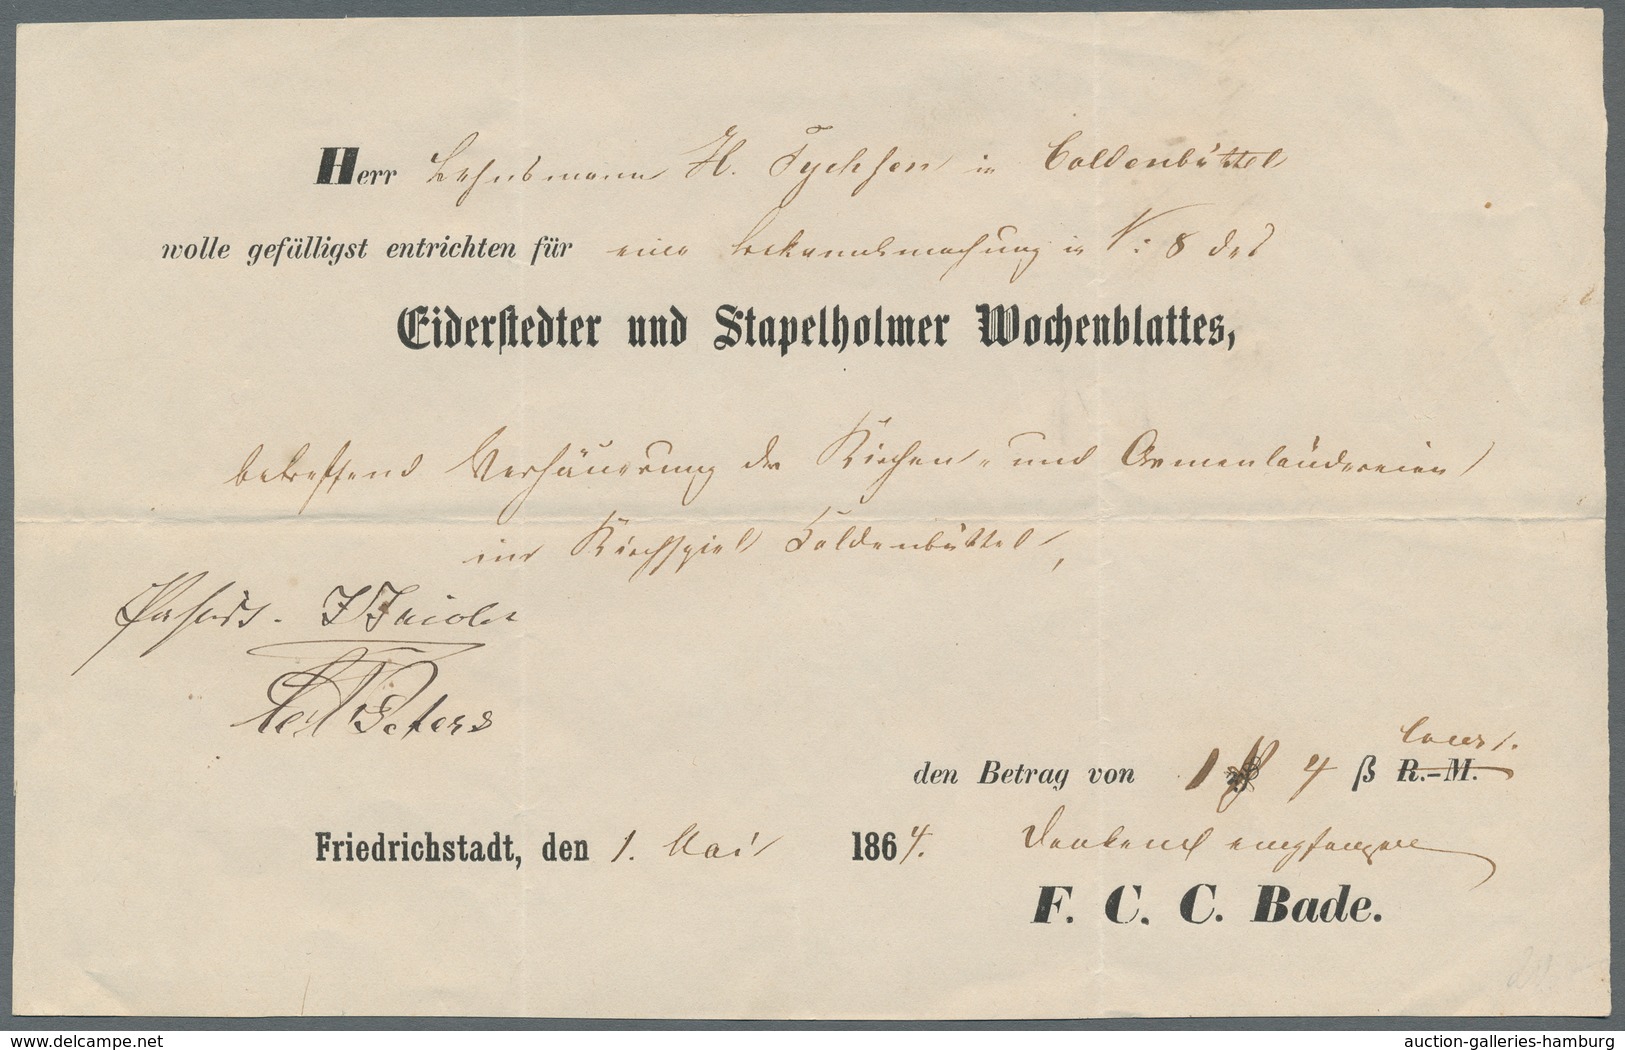 Herr Lehnsmann H. Tychsen in Coldenbüttel
wolle gefälligst entrichten für eine Bekanntmachung in N: 8 des
Eiderstedter und Stapelholmer Wochenblattes,
betreffend Verhäuerung der Kirchen- und Armenländereien
im Kirchspiel Coldenbüttel,
J Jacobs
Peters
Cour.
den Betrag von 1 4 ß R.-M.
Friedrichstadt, den 1. Mai 1864. Dankend empfangen
F. C. C. Bade.
delcampe.net
auction-galleries-hamburg